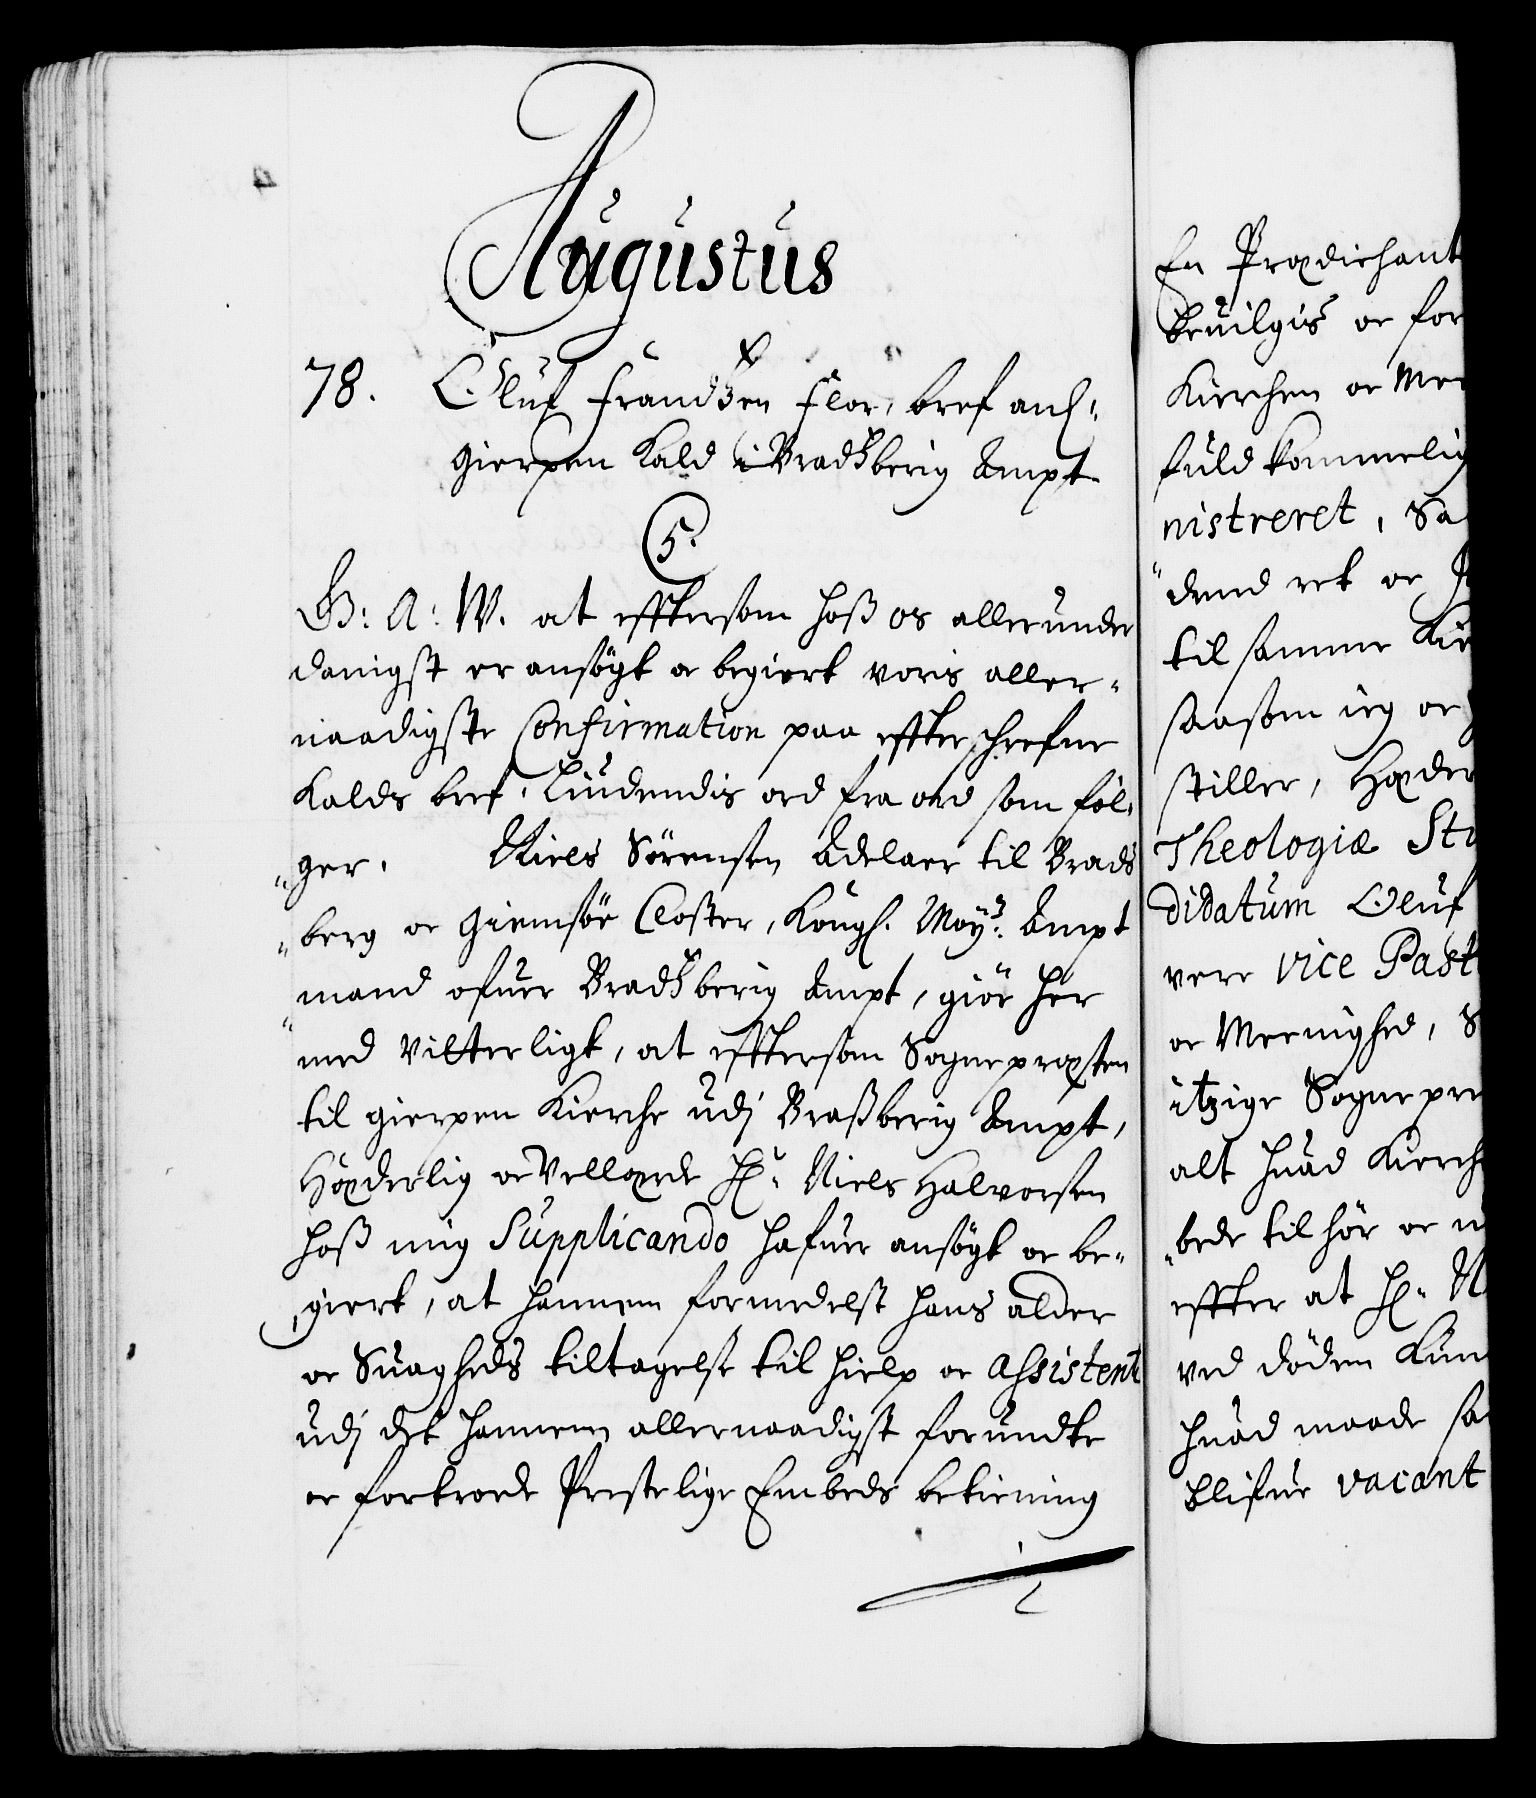 Augustus
78. Oluf Frandsen Flor, bref anl:
Gierpen Kald i Bradsberig Ampt
5.
G: A: W. at efftersom hoß os allerunder
danigst er ansøgt oc begiert voris aller-
naadigste Confirmation paa effterschrefne
Kalds bref, Liudendis ord fra ord som føl-
ger. Niels Sørensen Adelaer til Brads
berg oc Giemsøe Closter, Kongl. May:s Ampt
mand ofuer Bradsberig Ampt, giør her
med vitterligt, at efftersom Sognepræsten
til Gierpen Kierche udj Braßberig Ampt,
Hæderlig oc Vellærde Hr. Niels Halvorsen
hoß mig Supplicando hafuer ansøgt oc be-
giert, at hannem formedelst hans alder
oc Suagheds tiltagelse til hielp oc Assistentz
udj det hannem allernaadigst forundte
oc fortroede Prestelige Embeds betiening
En Prædichant
beuilgis oc for
Kierchen oc Me
fuldkommelig
nistreret, Sa
dend ret oc J
til samme Kir
saasom ieg oc
stiller, Hæder
Theologiæ Stu
didatum Oluf
vere vice Past
oc Meenighed, S
itzige Sognepre
alt huad Kierch
bede tilhør oc
effter at Hr. N
ved døden
huad maade sa
blifue vacant